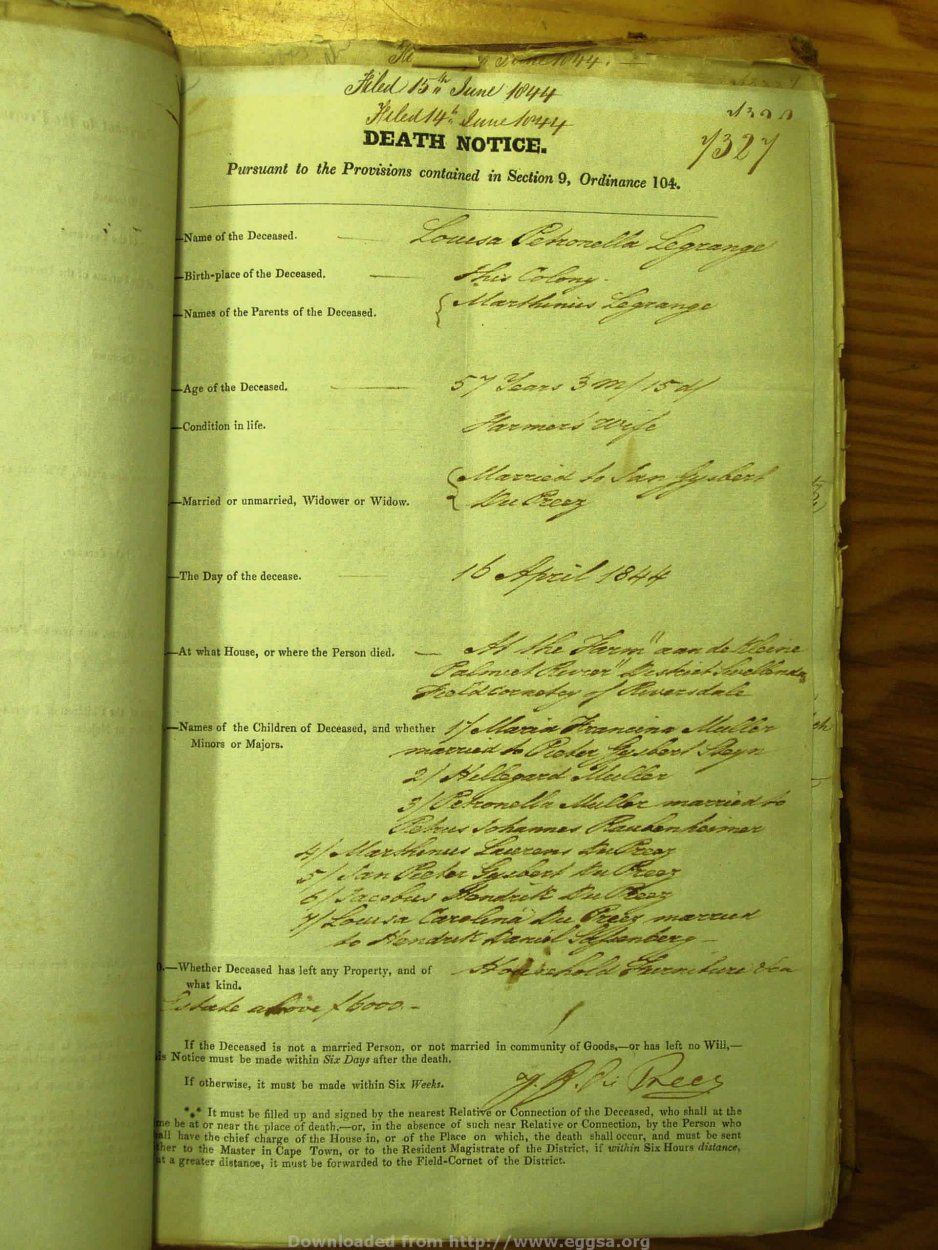 June 1844.
Filed 15th June 1844
Filed 14th June 1844
7327
DEATH NOTICE.
Pursuant to the Provisions contained in Section 9, Ordinance 104.
—Name of the Deceased. Louisa Petronella Legrange
—Birth-place of the Deceased. this Colony.
—Names of the Parents of the Deceased. Marthinus Legrange
—Age of the Deceased. 57 Years 3 m/ 15 d/
—Condition in life. Farmers Wife
Married to Jan Gysbert
—Married or unmarried, Widower or Widow. Du Preez
—The Day of the decease. 16 April 1844
—At what House, or where the Person died. — At the Farm "aan de Kleine
Palmiet Rivier" District
Fieldcornetcy of Riversdale
—Names of the Children of Deceased, and whether 1/ Maria Francina Muller
Minors or Majors. married to Pieter Gysbert Steyn
2/ Hillegard Muller
3/ Petronella Muller married to
Petrus Johannes Raubenheimer
4/ Marthinus Laurens Du Preez
5/ Jan Pieter Gysbert Du Preez
6/ Jacobus Hendrik Du Preez
7/ Louisa Carolina Du Preez married
to Hendrik Daniel
—Whether Deceased has left any Property, and of Household Furniture
what kind.
Estate above £6000 -
If the Deceased is not a married Person, or not married in community of Goods,—or has left no Will,—
Notice must be made within Six Days after the death.
If otherwise, it must be made within Six Weeks. Du Preez
*⁎* It must be filled up and signed by the nearest Relative or Connection of the Deceased, who shall at the
be at or near the place of death,—or, in the absence of such near Relative or Connection, by the Person who
have the chief charge of the House in, or of the Place on which, the death shall occur, and must be sent
to the Master in Cape Town, or to the Resident Magistrate of the District, if within Six Hours distance,
at a greater distance, it must be forwarded to the Field-Cornet of the District.
Downloaded from http://www.eggsa.org